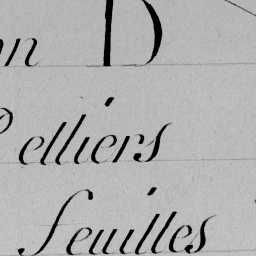 on D
Celliers
feuilles